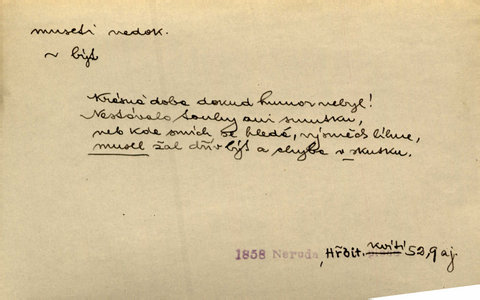 museti nedok.
~ být
Krásná doba dokud humor nebyl!
Nestávalo touhy ani smutku,
neb kde smích se hledá, výsměch líhne,
musel žal dřív být a chyba v skutku.
1858 Neruda, Hřbit. kvítí 52,9 aj.